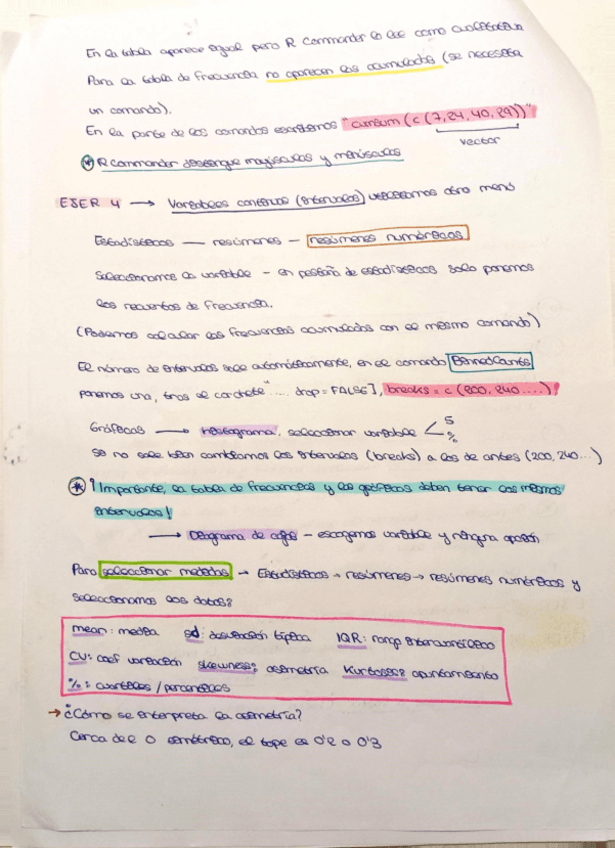 En la tabla aparece igual pero R Commander lo lee como cualitativa
Para la tabla de frecuencia no aparecen las acumuladas (se necesita
un comando).
En la parte de los comandos escribimos "cumsum (c (7,24,40,29))"
vector
* R Commander distingue mayúsculas y minúsculas
EJER 4 → Variables continuas (intervalos) utilizamos otro menú
Estadísticos — resúmenes — resúmenes numéricos
Seleccionamos la variable - en pestaña de estadísticos solo ponemos
los recuentos de frecuencia.
(Podemos calcular las frecuencias acumuladas con el mismo comando)
El número de intervalos sale automáticamente, en el comando BinnedCounts
ponemos una, tras el corchete " .... drop = FALSE], breaks = c (200, 240 ....)!
Gráficas → histograma, seleccionar variable < S
%
Si no sale bien cambiamos los intervalos (breaks) a los de antes (200, 240...)
* ! Importante, la tabla de frecuencias y las gráficas deben tener los mismos
intervalos!
→ Diagrama de cajas - escogemos variable y ninguna opción
Para seleccionar medidas → Estadísticos → resúmenes → resúmenes numéricos y
seleccionamos los datos:
mean: media sd: desviación típica IQR: rango intercuartílico
CV: coef variación skewness: asimetría Kurtosis: apuntamiento
%: cuartiles / percentiles
→ ¿Cómo se interpreta la asimetría?
Cerca del 0 simétrico, el tope es 0'2 o 0'3